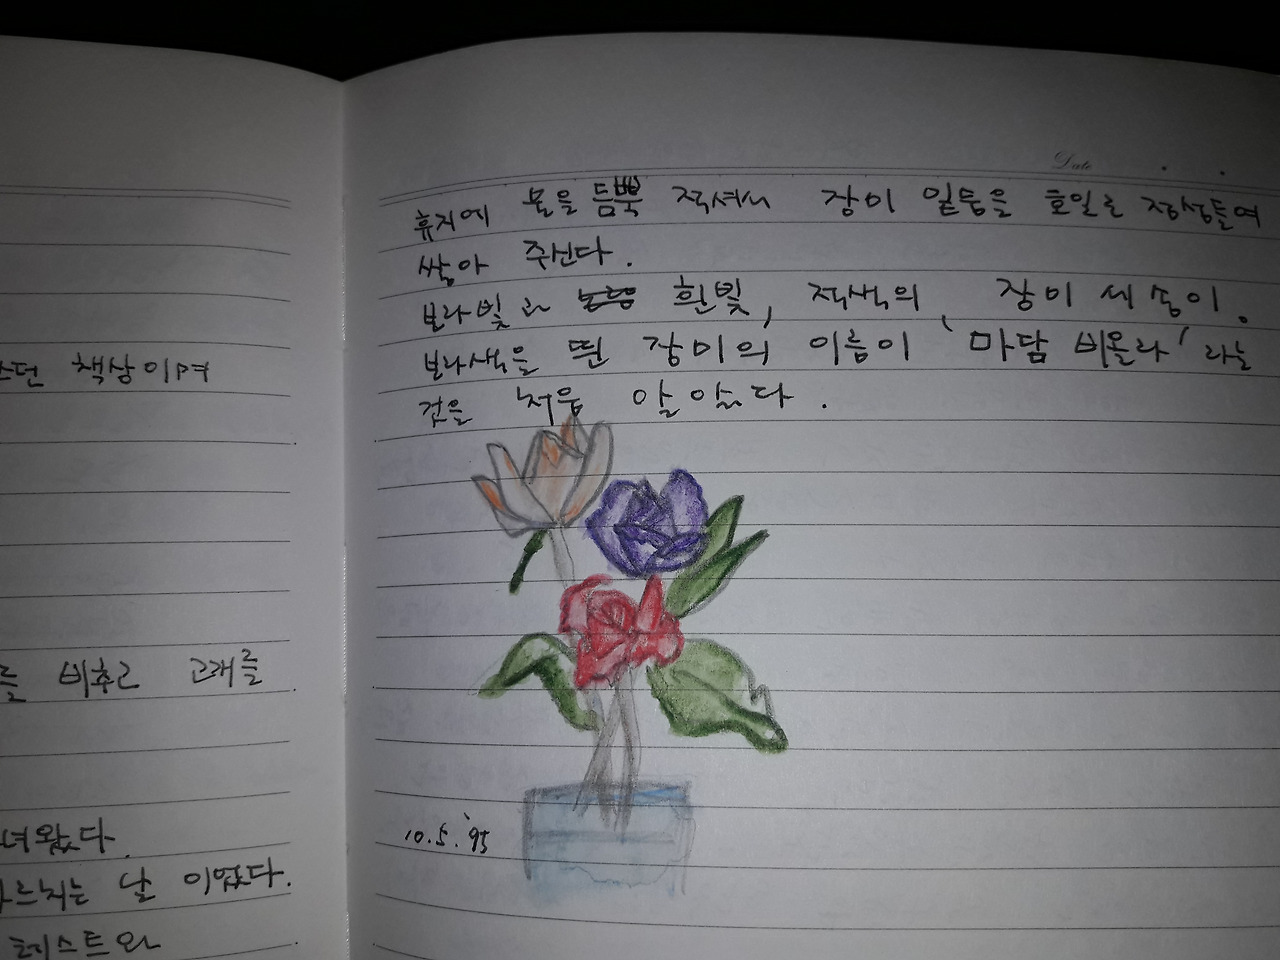 스던 책상이며
를 비추고 고래를
녀왔다.
르치는 날 이었다.
테스트와
Date
휴지에 물을 듬뿍 적셔서 장미 밑둥을 호일로 정성들여
쌓아 주신다.
보라빛과 흰빛, 적색의, 장미 세 송이.
보라색을 띈 장미의 이름이 '마담 비올라' 라는
것을 처음 알았다.
10.5.'95